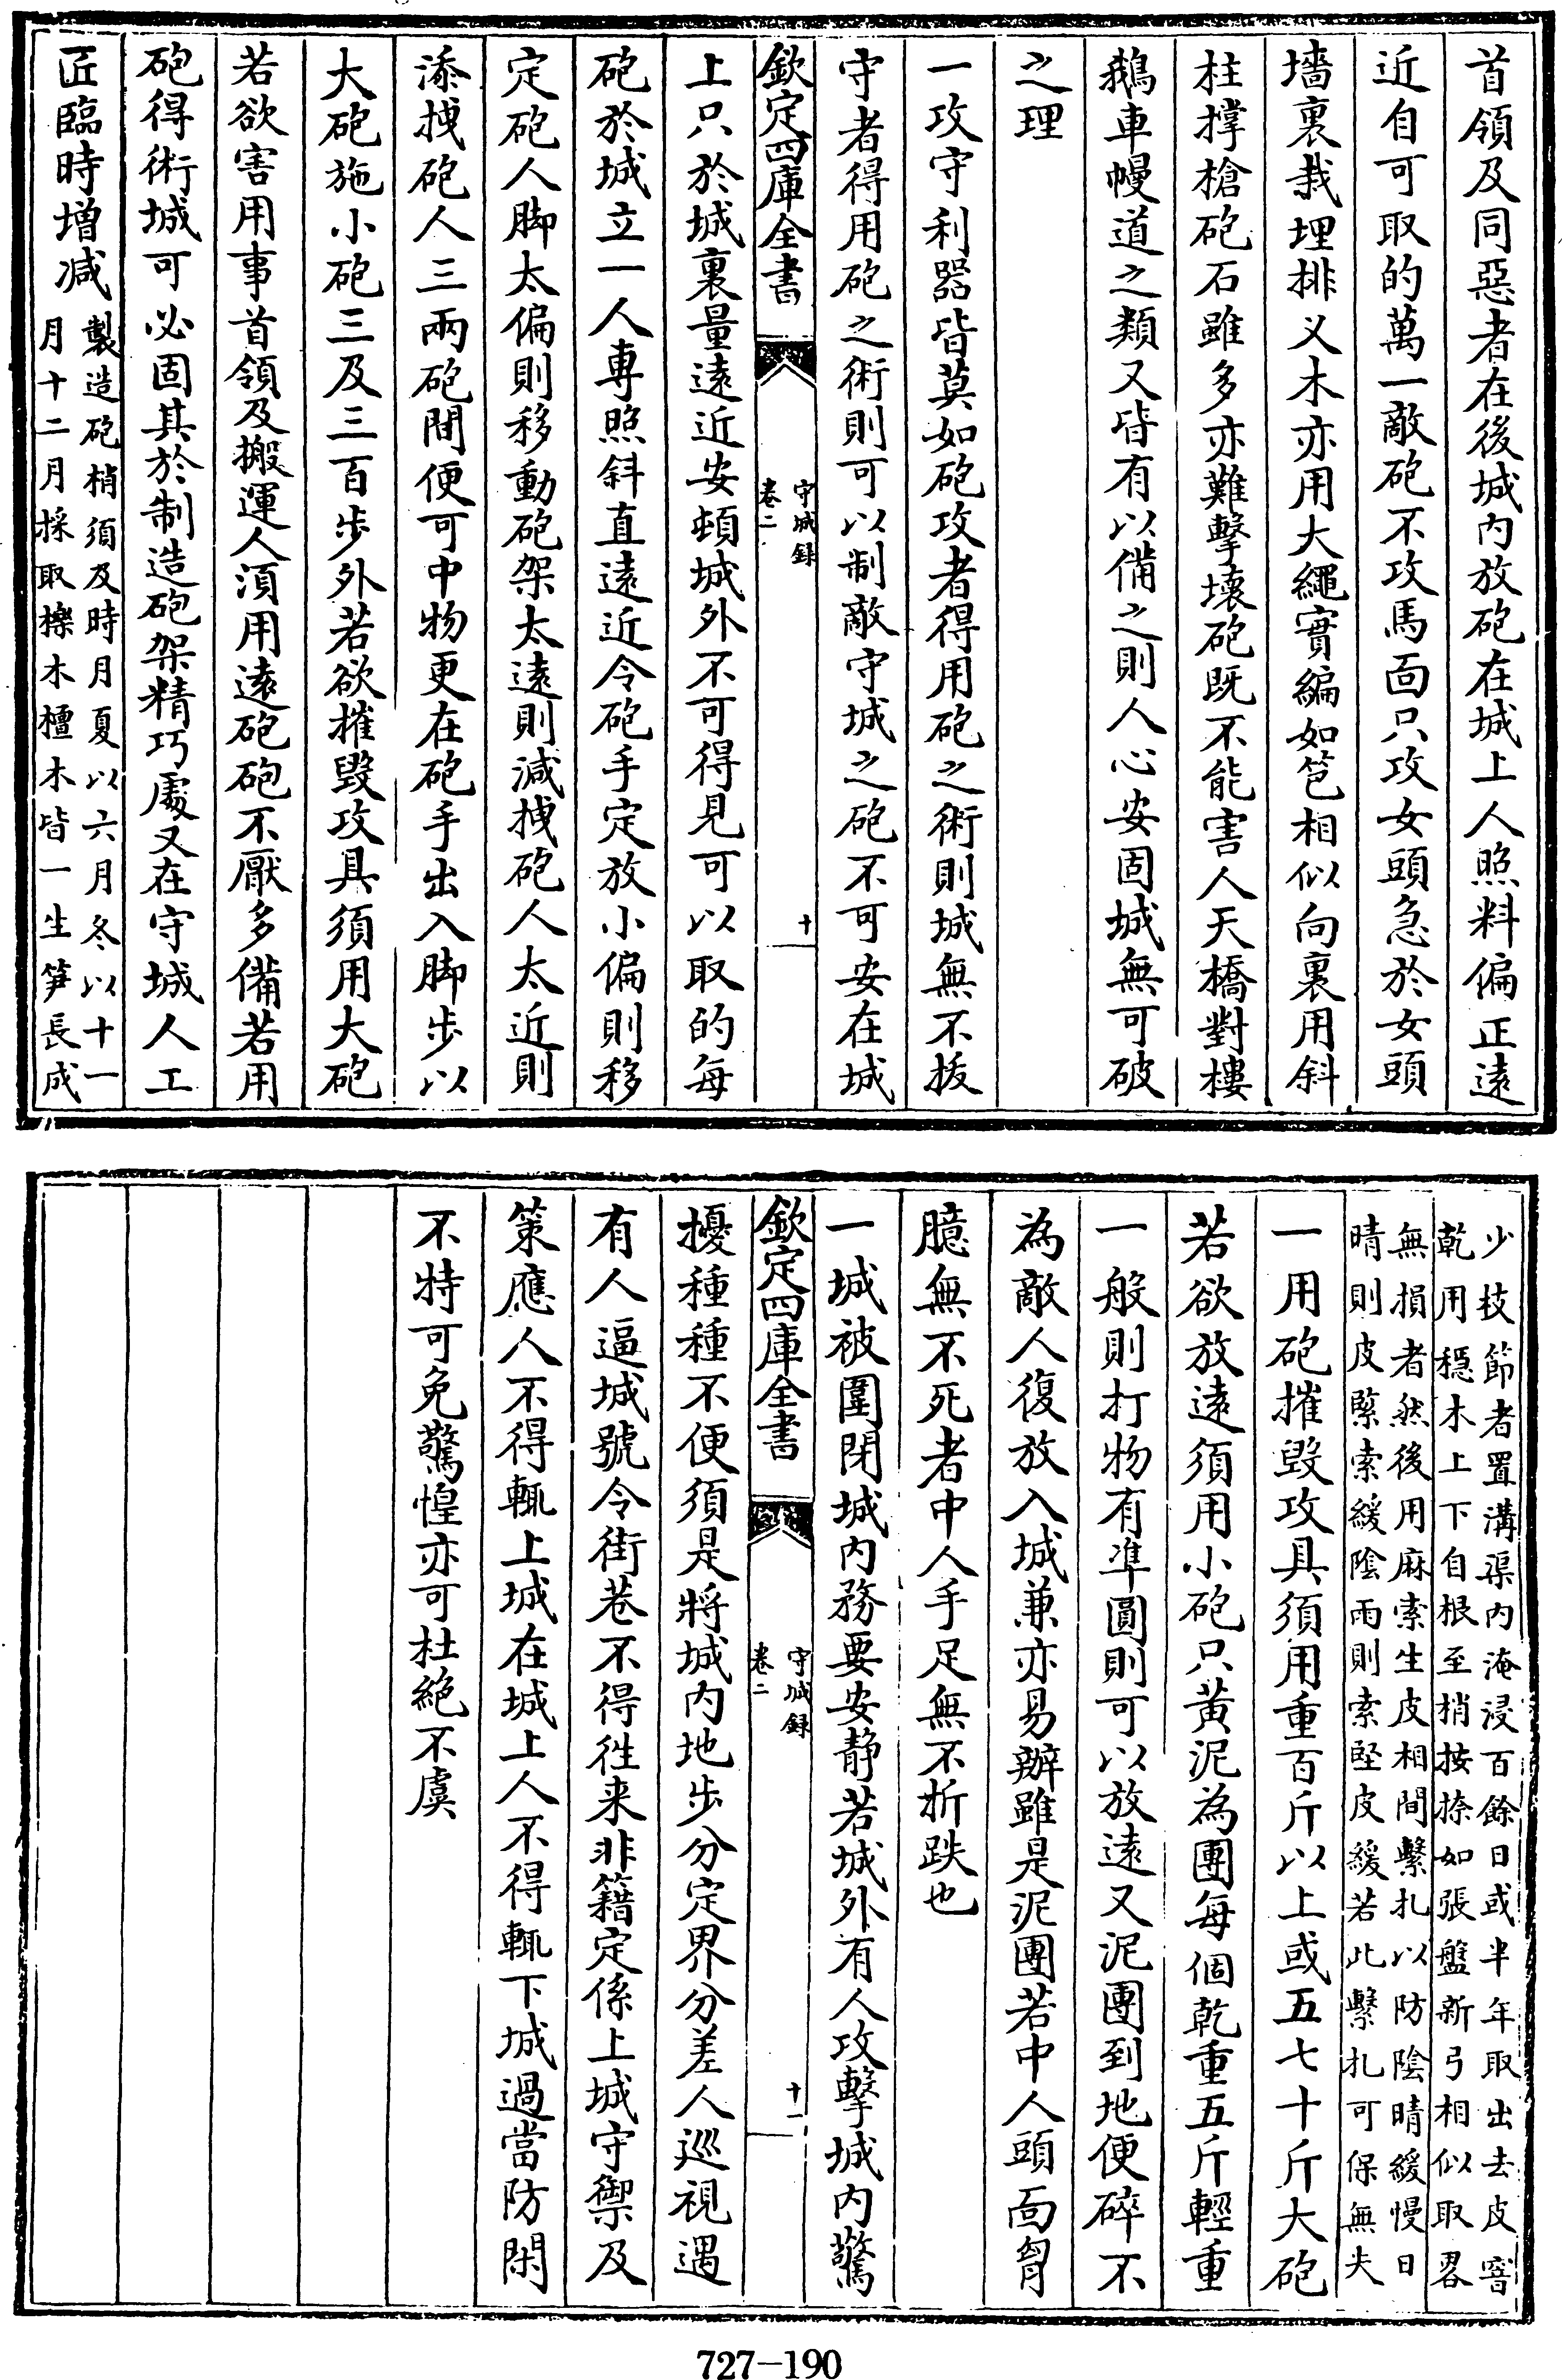 首領及同惡者在後城内放砲在城上人照料偏正遠
近自可取的萬一敵砲不攻馬面只攻女頭急於女頭
墻裏栽埋排义木亦用大繩實編如笆相似向裏用斜
柱撑搶砲石雖多亦難擊壞砲既不能害人天橋對樓
鵝車幔道之類又皆有以備之則人心安固城無可破
之理
一攻守利器皆莫如砲攻者得用砲之術則城無不拔
守者得用砲之術則可以制敵守城之砲不可安在城
欽定四庫全書
守城録
卷二
十
上只於城裏量遠近安頓城外不可得見可以取的每
砲於城立一人專照斜直遠近令砲手定放小偏則移
定砲人脚太偏則移動砲架太遠則減拽砲人太近則
添拽砲人三兩砲間便可中物更在砲手出入脚步以
大砲施小砲三及三百步外若欲摧毀攻具須用大砲
若欲害用事首領及搬運人須用遠砲砲不厭多備若用
砲得術城可必固其於制造砲架精巧處又在守城人工
匠臨時增减
製造砲梢須及時月夏以六月冬以十一
月十二月採取櫟木檀木皆一生笋長成
少枝節者置溝渠内淹浸百餘日或半年取出去皮窨
乾用穩木上下自根至梢按捺如張盤新弓相似取畧
無損者然後用麻索生皮相間繫扎以防陰晴緩慢日
晴則皮緊索緩陰雨則索堅皮緩若此繫扎可保無失
一用砲摧毀攻具須用重百斤以上或五七十斤大砲
若欲放遠須用小砲只黄泥為團每個乾重五斤輕重
一般則打物有凖圓則可以放遠又泥團到地便碎不
為敵人復放入城兼亦易辦雖是泥團若中人頭面胷
臆無不死者中人手足無不折跌也
一城被圍閉城内務要安静若城外有人攻擊城内驚
欽定四庫全書
守城録
卷二
十一
擾種種不便須是將城内地步分定界分差人巡視遇
有人逼城號令街巷不得徃来非籍定係上城守禦及
策應人不得輒上城在城上人不得輒下城過當防閑
不特可免驚惶亦可杜絶不虞
727-190